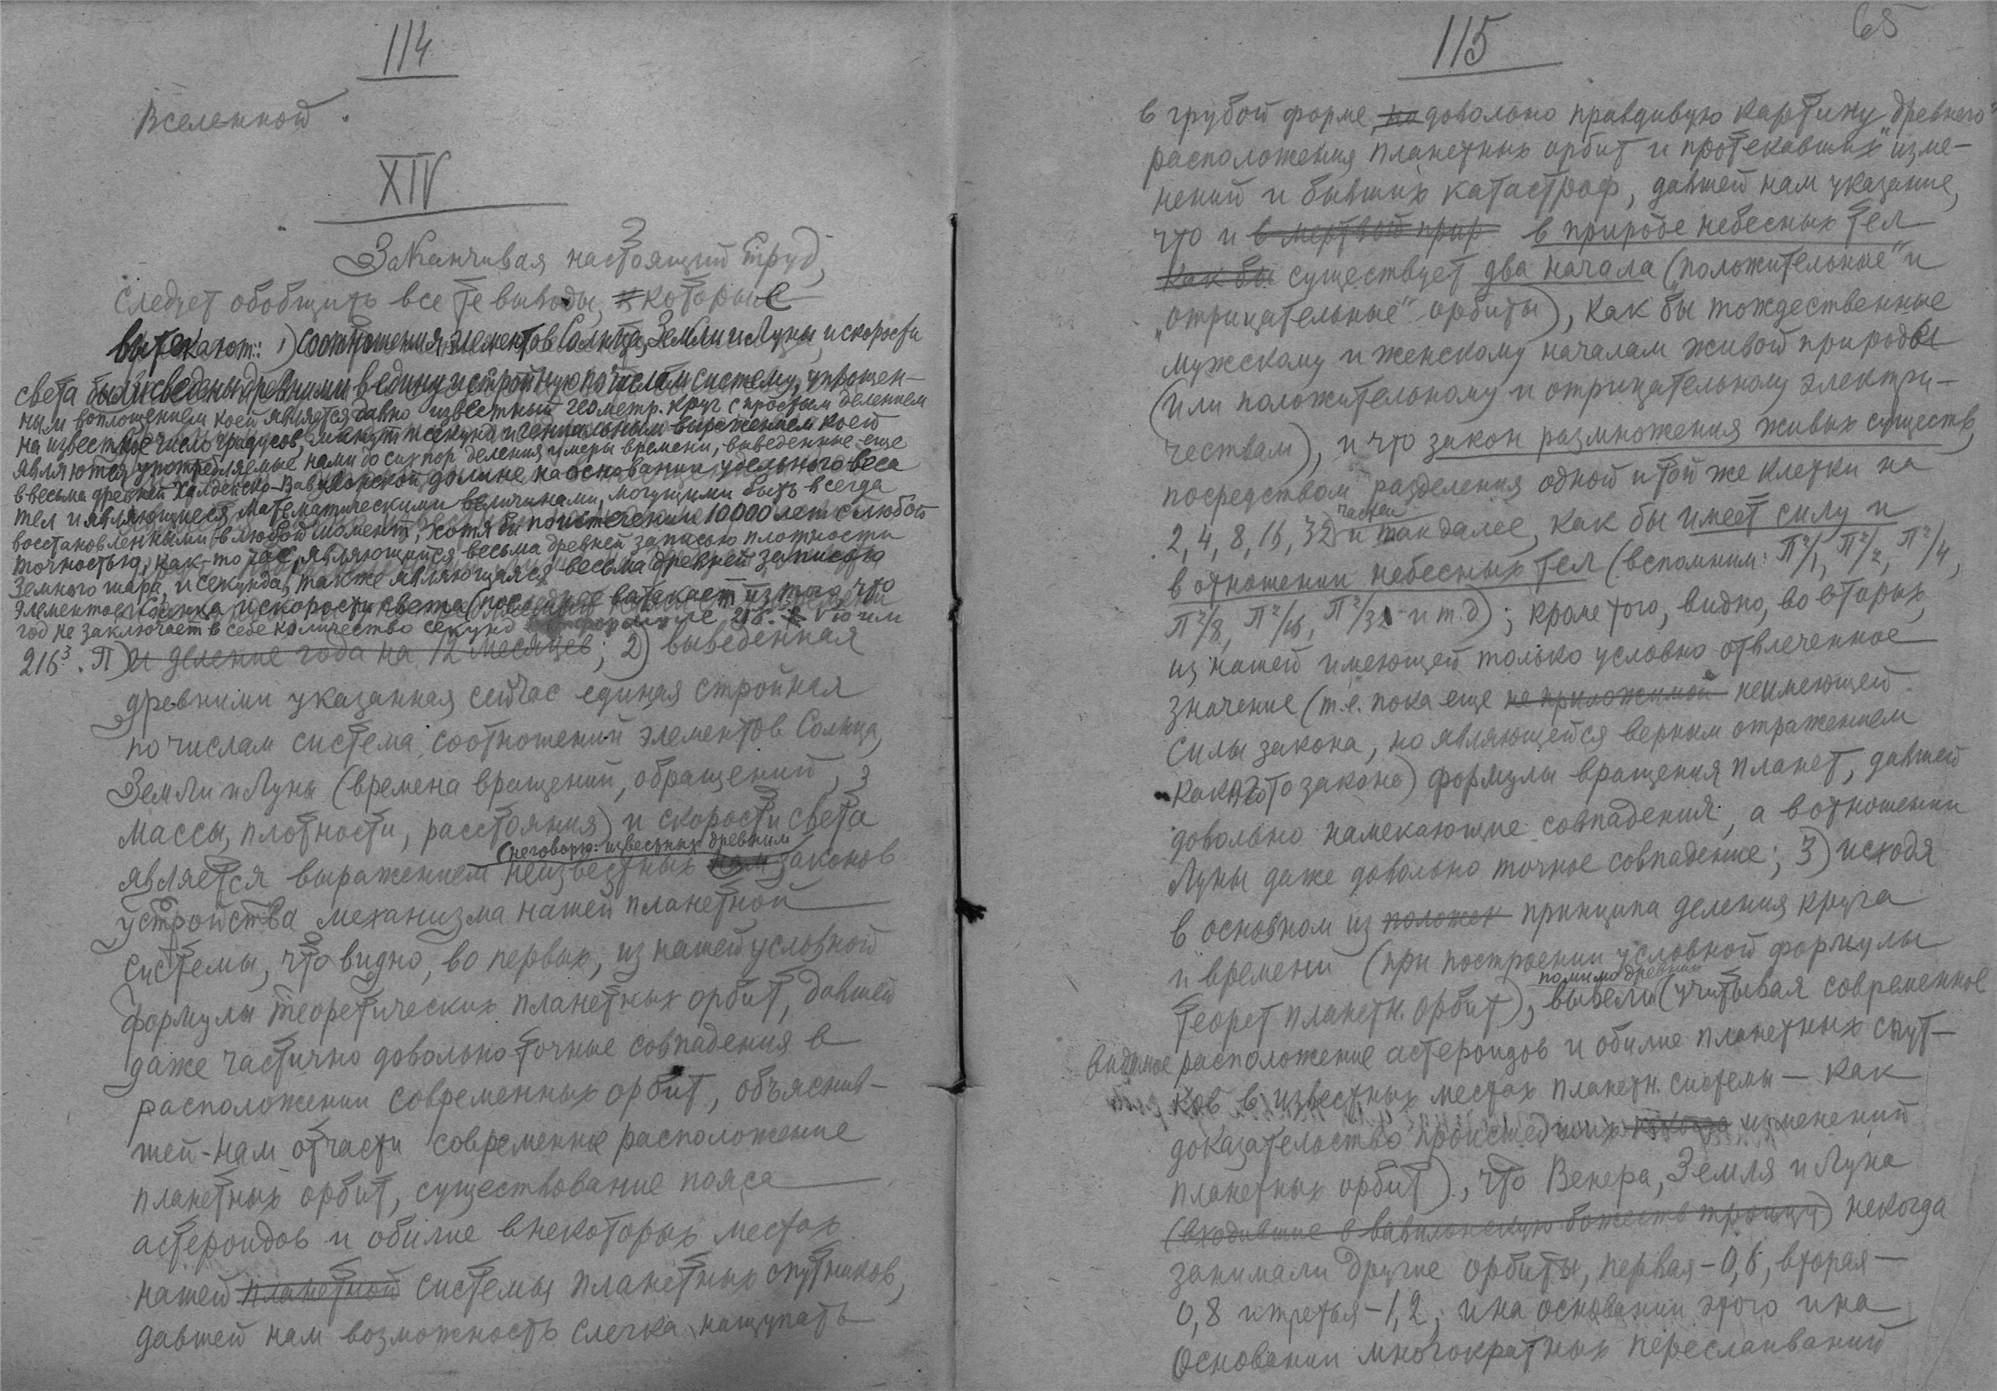 114
Вселенной.
XIV
Заканчивая настоящий труд,
следует обобщить все те выводы, которые
вытекают: 1) соотношения элементов Солнца, Земли и Луны и скорости
света были сведены древними в едину и стройную по числам систему, упрощен-
ным воплощением коей является давно известный геометр. круг с простым делением
на известное число градусов, минут и секунд и гениальным выражением коей
являются употребляемые нами до сих пор деления и меры времени, выведенные еще
в весьма древней Халдейско-Вавилонской долине на основании удельного веса
тел и являющиеся математическими величинами, могущими быть всегда
восстановленными в любой момент, хотя бы по истечении 10000 лет с любой
точностью, как-то час, являющийся весьма древней записью плотности
Земного шара, и секунда, также являющаяся весьма древней записью
элементов и скорости света (последнее вытекает из того, что
год не заключает в себе количество секунд
216³. П) и деление года на 12 месяцев; 2) выведенная
древними указанная сейчас единая стройная
по числам система соотношений элементов Солнца,
Земли и Луны (времена вращений, обращений,
массы, плотности, расстояния) и скорости света
(не говорю: известных древним
является выражением неизвестных нам законов
устройства механизма нашей планетной
системы, что видно, во первых, из нашей условной
формулы теоретических планетных орбит, давшей
даже частично довольно точные совпадения в
расположении современных орбит, объяснив-
шей нам отчасти современное расположение
планетных орбит, существование пояса
астероидов и обилие в некоторых местах
нашей планетной системы планетных спутников,
давшей нам возможность слегка нащупать
115
65
в грубой форме но довольно правдивую картину „древнего"
расположения планетных орбит и протекавших изме-
нений и бывших катастроф, давшей нам указание,
что и в мертвой прир в природе небесных тел
как бы существует два начала („положительные" и
„отрицательные" орбиты), как бы тождественные
мужскому и женскому началам живой природы
(или положительному и отрицательному электри-
чествам), и что закон размножения живых существ,
посредством разделения одной и той же клетки на
частей
2, 4, 8, 16, 32 и так далее, как бы имеет силу и
в отношении небесных тел (вспомним: П²/1, П²/2, П²/4,
П²/8, П²/16, П²/32 и т.д); кроме того, видно, во вторых,
из нашей имеющей только условно отвлеченное
значение (т.е. пока еще не приложимой неимеющей
силы закона, но являющейся верным отражением
какого то закона) формулы вращения планет, давшей
довольно намекающие совпадения, а в отношении
Луны даже довольно точное совпадение; 3) исходя
в основном из положен принципа деления круга
и времени (при построении условной формулы
помимо древних
теорет планетн. орбит), вывели (учитывая современное
видимое расположение астероидов и обилие планетных спут-
ков в известных местах планетн. системы — как
доказательство происшедших изменений
планетных орбит), что Венера, Земля и Луна
(входившие в вавилонскую божеств троицу) некогда
занимали другие орбиты, первая – 0,6, вторая –
0,8 и третья – 1,2, и на основании этого и на
основании многократных переслаиваний